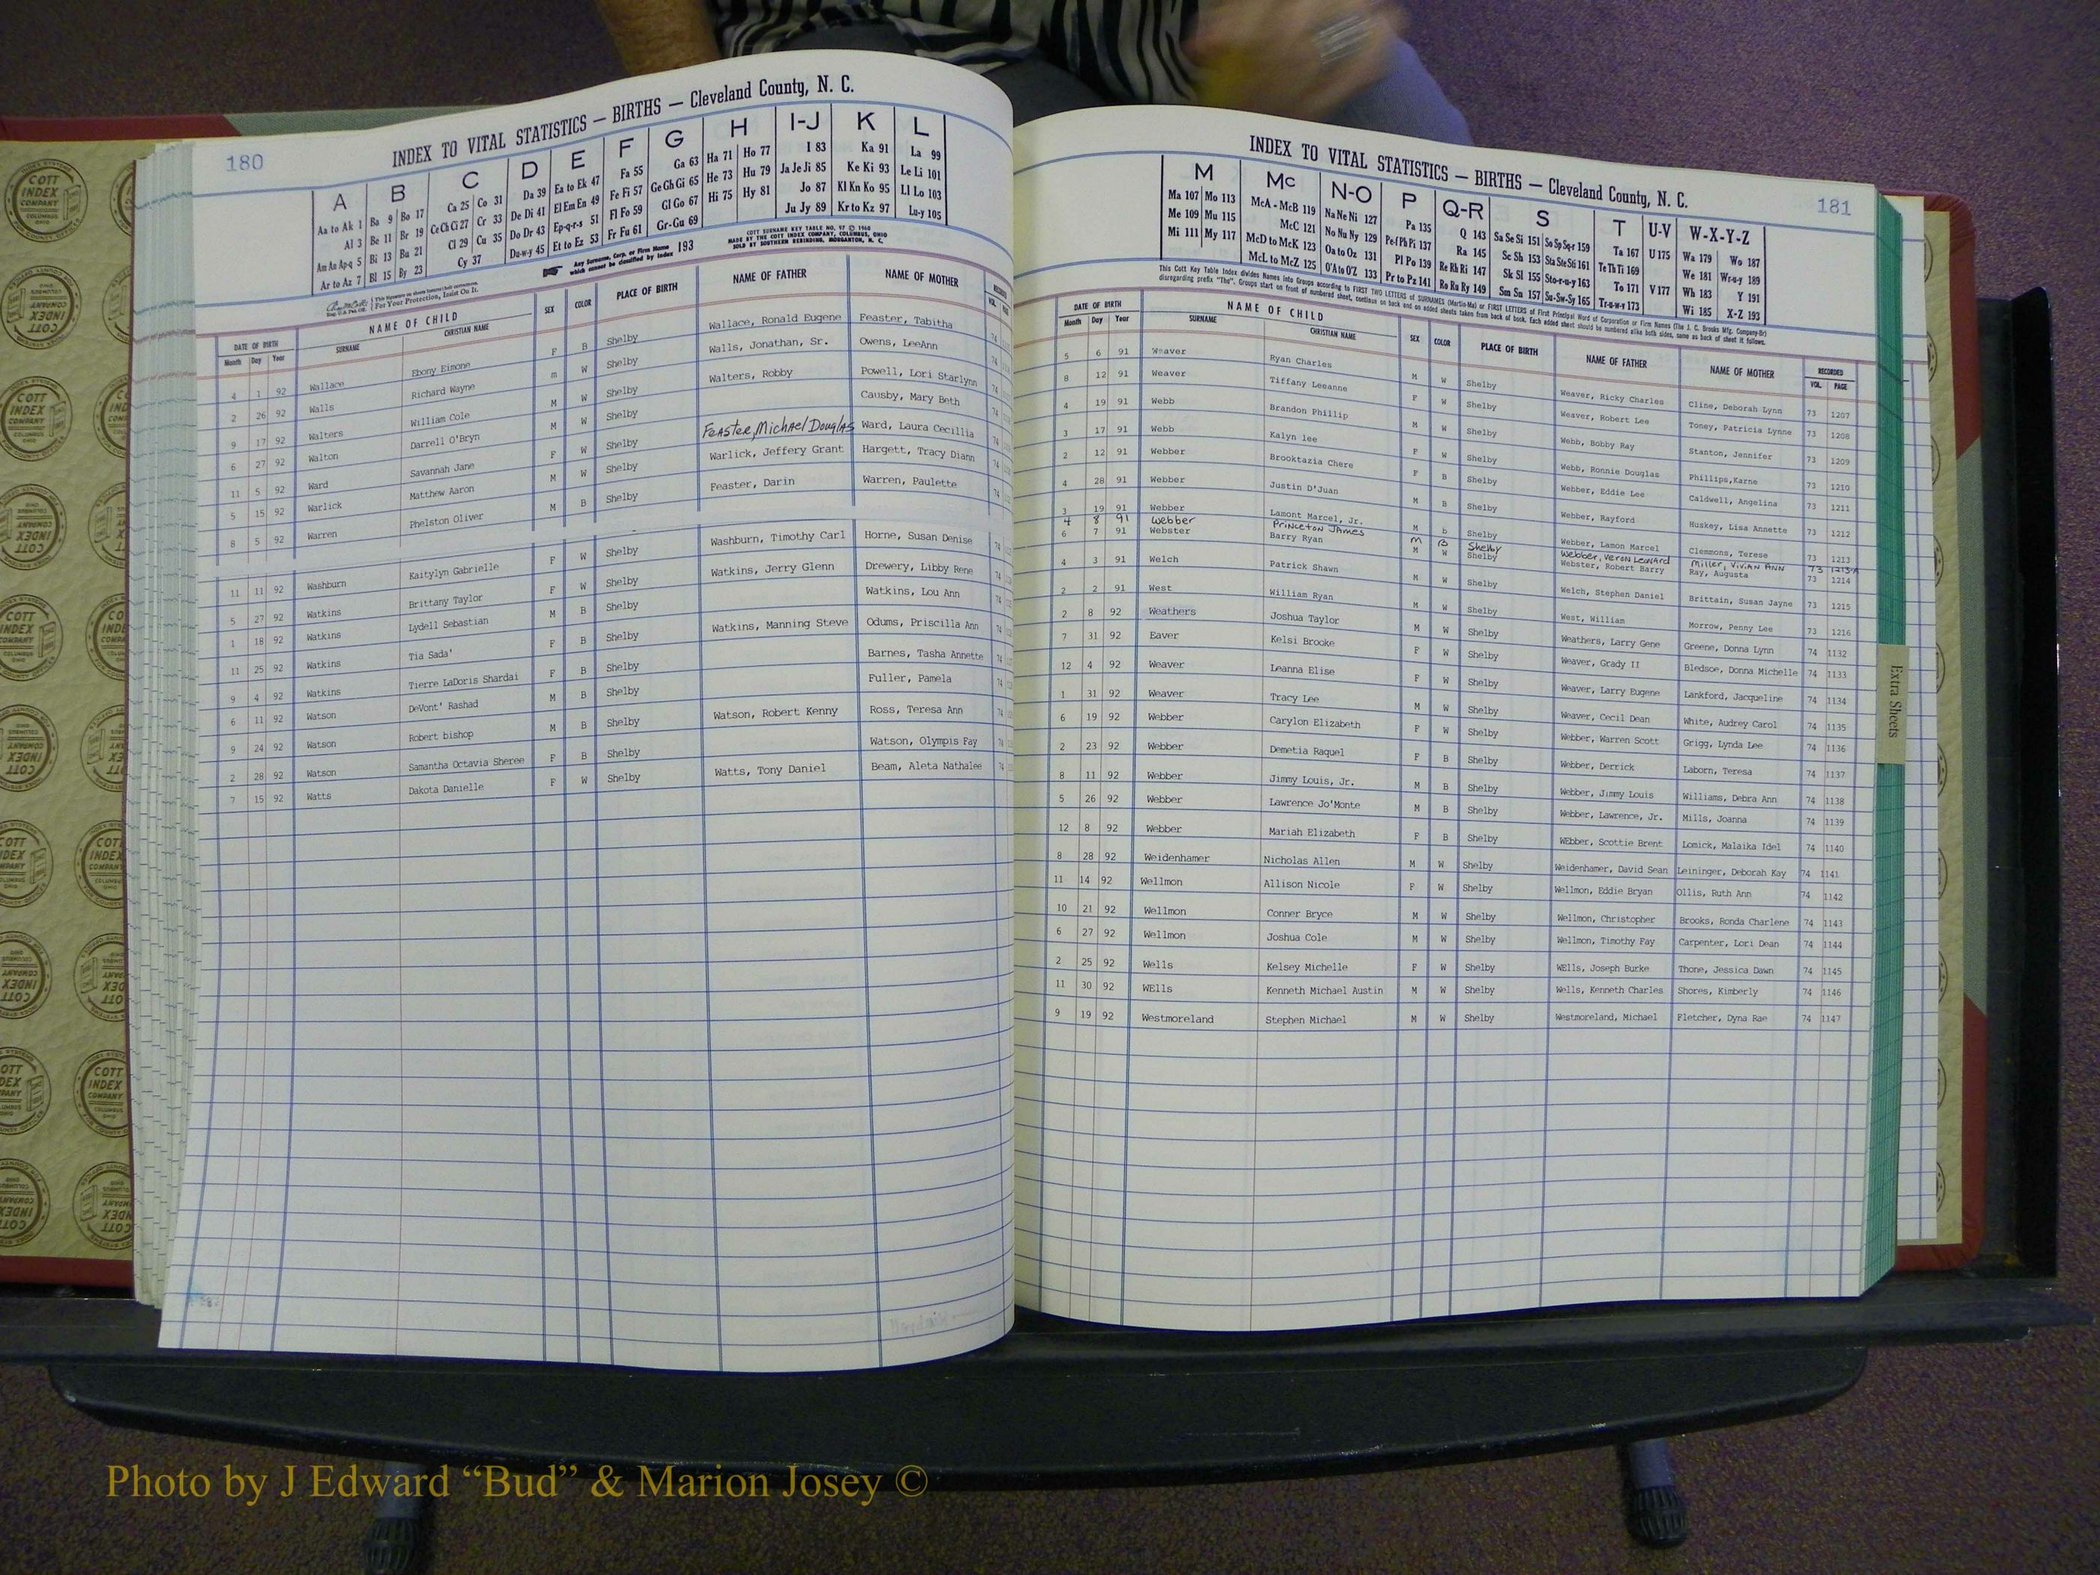 180
INDEX TO VITAL STATISTICS — BIRTHS — Cleveland County, N. C.
A B C D E F G H I-J K L
Aa to Ak 1 Ba 9 Bo 17 Ca 25 Co 31 Da 39 Ea to Ek 47 Fa 55 Ga 63 Ha 71 Ho 77 I 83 Ka 91 La 99
Al 3 Be 11 Br 19 Ce Ch Ci 27 Cr 33 De Di 41 El Em En 49 Fe Fi 57 Ge Gh Gi 65 He 73 Hu 79 Ja Je Ji 85 Ke Ki 93 Le Li 101
Am An Ap-q 5 Bi 13 Bu 21 Cl 29 Cu 35 Do Dr 43 Ep-q-r-s 51 Fl Fo 59 Gl Go 67 Hi 75 Hy 81 Jo 87 Kl Kn Ko 95 Ll Lo 103
Ar to Az 7 Bl 15 By 23 Cy 37 Du-w-y 45 Et to Ez 53 Fr Fu 61 Gr-Gu 69 Ju Jy 89 Kr to Kz 97 Lu-y 105
Any Surname, Corp. or Firm Name which cannot be classified by Index 193
COTT SURNAME KEY TABLE NO. 97 © 1960
MADE BY THE COTT INDEX COMPANY, COLUMBUS, OHIO
SOLD BY SOUTHERN REBINDING, MORGANTON, N. C.
For Your Protection, Insist On It.
DATE OF BIRTH NAME OF CHILD SEX COLOR PLACE OF BIRTH NAME OF FATHER NAME OF MOTHER RECORDED
Month Day Year SURNAME CHRISTIAN NAME VOL.
4 1 92 Wallace Ebony Eimone F B Shelby Wallace, Ronald Eugene Feaster, Tabitha 74
2 26 92 Walls Richard Wayne m W Shelby Walls, Jonathan, Sr. Owens, LeeAnn 74
9 17 92 Walters William Cole M W Shelby Walters, Robby Powell, Lori Starlynn 74
6 27 92 Walton Darrell O'Bryn M W Shelby Causby, Mary Beth 74
11 5 92 Ward Savannah Jane F W Shelby Feaster, Michael Douglas Ward, Laura Cecillia 74
5 15 92 Warlick Matthew Aaron M W Shelby Warlick, Jeffery Grant Hargett, Tracy Diann 74
8 5 92 Warren Phelston Oliver M B Shelby Feaster, Darin Warren, Paulette 74
11 11 92 Washburn Kaitylyn Gabrielle F W Shelby Washburn, Timothy Carl Horne, Susan Denise 74
5 27 92 Watkins Brittany Taylor F W Shelby Watkins, Jerry Glenn Drewery, Libby Rene 74
1 18 92 Watkins Lydell Sebastian M B Shelby Watkins, Lou Ann 74
11 25 92 Watkins Tia Sada' F B Shelby Watkins, Manning Steve Odums, Priscilla Ann 74
9 4 92 Watkins Tierre LaDoris Shardai F B Shelby Barnes, Tasha Annette 74
6 11 92 Watson DeVont' Rashad M B Shelby Fuller, Pamela
9 24 92 Watson Robert bishop M B Shelby Watson, Robert Kenny Ross, Teresa Ann 74
2 28 92 Watson Samantha Octavia Sheree F B Shelby Watson, Olympis Fay 74
7 15 92 Watts Dakota Danielle F W Shelby Watts, Tony Daniel Beam, Aleta Nathalee 74
181
INDEX TO VITAL STATISTICS — BIRTHS — Cleveland County, N. C.
M Mc N-O P Q-R S T U-V W-X-Y-Z
Ma 107 Mo 113 McA - McB 119 Na Ne Ni 127 Pa 135 Q 143 Sa Se Si 151 So Sp Sq-r 159 Ta 167 U 175 Wa 179 Wo 187
Me 109 Mu 115 McC 121 No Nu Ny 129 Pe-f Ph Pi 137 Ra 145 Sc Sh 153 Sta Ste Sti 161 Te Th Ti 169 We 181 Wr-u-y 189
Mi 111 My 117 McD to McK 123 Oa to Oz 131 Pl Po 139 Re Rh Ri 147 Sk Sl 155 Sto-r-u-y 163 To 171 V 177 Wh 183 Y 191
McL to McZ 125 O'A to O'Z 133 Pr to Pz 141 Ro Ru Ry 149 Sm Sn 157 Su-Sw-Sy 165 Tr-u-w-y 173 Wi 185 X-Z 193
This Cott Key Table Index divides Names into Groups according to FIRST TWO LETTERS of SURNAMES (Martin-Ma) or FIRST LETTERS of First Principal Word of Corporation or Firm Names (The J. C. Brooks Mfg. Company-Br)
disregarding prefix "The". Groups start on front of numbered sheet, continue on back and on added sheets taken from back of book. Each added sheet should be numbered alike both sides, same as back of sheet it follows.
DATE OF BIRTH NAME OF CHILD SEX COLOR PLACE OF BIRTH NAME OF FATHER NAME OF MOTHER RECORDED
Month Day Year SURNAME CHRISTIAN NAME VOL. PAGE
5 6 91 Weaver Ryan Charles M W Shelby Weaver, Ricky Charles Cline, Deborah Lynn 73 1207
8 12 91 Weaver Tiffany Leeanne F W Shelby Weaver, Robert Lee Toney, Patricia Lynne 73 1208
4 19 91 Webb Brandon Phillip M W Shelby Webb, Bobby Ray Stanton, Jennifer 73 1209
3 17 91 Webb Kalyn lee F W Shelby Webb, Ronnie Douglas Phillips,Karne 73 1210
2 12 91 Webber Brooktazia Chere F B Shelby Webber, Eddie Lee Caldwell, Angelina 73 1211
4 28 91 Webber Justin D'Juan M B Shelby Webber, Rayford Huskey, Lisa Annette 73 1212
3 19 91 Webber Lamont Marcel, Jr. M b Shelby Webber, Lamon Marcel Clemmons, Terese 73 1213
4 8 91 Webber Princeton James M B Shelby Webber, Veron Leonard Miller, Vivian Ann 73 1213A
6 7 91 Webster Barry Ryan M W Shelby Webster, Robert Barry Ray, Augusta 73 1214
4 3 91 Welch Patrick Shawn M W Shelby Welch, Stephen Daniel Brittain, Susan Jayne 73 1215
2 2 91 West William Ryan M W Shelby West, William Morrow, Penny Lee 73 1216
2 8 92 Weathers Joshua Taylor M W Shelby Weathers, Larry Gene Greene, Donna Lynn 74 1132
7 31 92 Eaver Kelsi Brooke F W Shelby Weaver, Grady II Bledsoe, Donna Michelle 74 1133
12 4 92 Weaver Leanna Elise F W Shelby Weaver, Larry Eugene Lankford, Jacqueline 74 1134
1 31 92 Weaver Tracy Lee M W Shelby Weaver, Cecil Dean White, Audrey Carol 74 1135
6 19 92 Webber Carylon Elizabeth F W Shelby Webber, Warren Scott Grigg, Lynda Lee 74 1136
2 23 92 Webber Demetia Raquel F B Shelby Webber, Derrick Laborn, Teresa 74 1137
8 11 92 Webber Jimmy Louis, Jr. M B Shelby Webber, Jimmy Louis Williams, Debra Ann 74 1138
5 26 92 Webber Lawrence Jo'Monte M B Shelby Webber, Lawrence, Jr. Mills, Joanna 74 1139
12 8 92 Webber Mariah Elizabeth F B Shelby WEbber, Scottie Brent Lomick, Malaika Idel 74 1140
8 28 92 Weidenhamer Nicholas Allen M W Shelby Weidenhamer, David Sean Leininger, Deborah Kay 74 1141
11 14 92 Wellmon Allison Nicole F W Shelby Wellmon, Eddie Bryan Ollis, Ruth Ann 74 1142
10 21 92 Wellmon Conner Bryce M W Shelby Wellmon, Christopher Brooks, Ronda Charlene 74 1143
6 27 92 Wellmon Joshua Cole M W Shelby Wellmon, Timothy Fay Carpenter, Lori Dean 74 1144
2 25 92 Wells Kelsey Michelle F W Shelby WElls, Joseph Burke Thone, Jessica Dawn 74 1145
11 30 92 WElls Kenneth Michael Austin M W Shelby Wells, Kenneth Charles Shores, Kimberly 74 1146
9 19 92 Westmoreland Stephen Michael M W Shelby Westmoreland, Michael Fletcher, Dyna Rae 74 1147
Extra Sheets
COTT INDEX COMPANY
COLUMBUS OHIO
Photo by J Edward “Bud” & Marion Josey ©